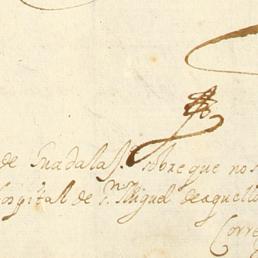 de Guadalax.ª sobre que no s
hospital de S.n Miguel de aquella
Corre